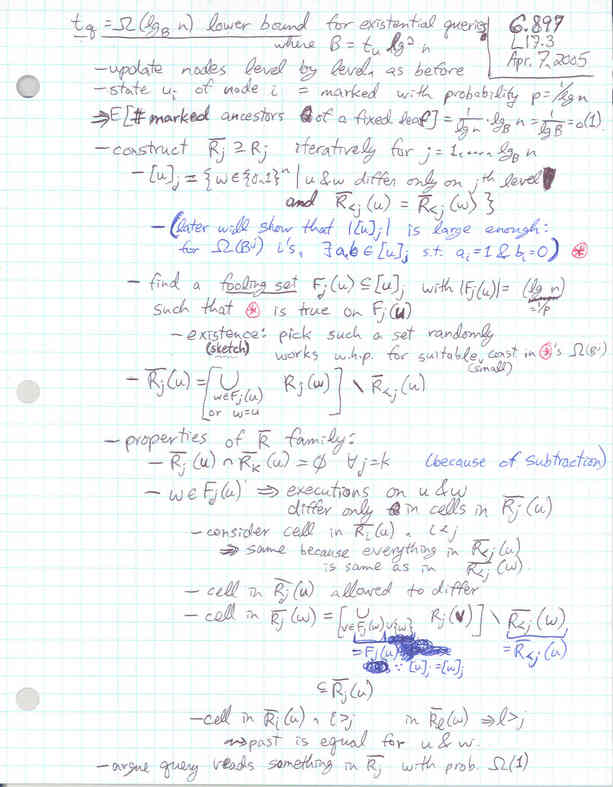 t_q = Ω(lg_B n) lower bound for existential queries
where B = t_u lg² n
6.897
L17.3
Apr. 7, 2005
- update nodes level by level, as before
- state u_i of node i = marked with probability p = 1/lg n
⇒ E[# marked ancestors of a fixed leaf] = 1/lg n · lg_B n = 1/lg B = o(1)
- construct R̄_j ⊇ R_j iteratively for j = 1, ..., lg_B n
- [u]_j = {w ∈ {0,1}^n | u & w differ only on jth level
and R̄_{<j}(u) = R̄_{<j}(w)}
- (later will show that |[u]_j| is large enough:
for Ω(B^j) i's, ∃ a,b ∈ [u]_j s.t. a_i = 1 & b_i = 0) ⊛
- find a fooling set F_j(u) ⊆ [u]_j with |F_j(u)| = (lg n)
= 1/p
such that ⊛ is true on F_j(u)
- existence: pick such a set randomly
(sketch) works w.h.p. for suitable const in ⊛'s Ω(B^j)
(small)
- R̄_j(u) = [∪ R_j(w)] \ R̄_{<j}(u)
w∈F_j(u)
or w=u
- properties of R̄ family:
- R̄_j(u) ∩ R̄_k(u) = ∅ ∀j=k (because of subtraction)
- w ∈ F_j(u) ⇒ executions on u & w
differ only in cells in R̄_j(u)
- consider cell in R̄_i(u), i<j
⇒ same because everything in R̄_{<j}(u)
is same as in R̄_{<j}(w)
- cell in R̄_j(u) allowed to differ
- cell in R̄_j(w) = [∪ R_j(v)] \ R̄_{<j}(w)
v∈F_j(w)∪{w}
= F_j(u) = R̄_{<j}(u)
∵ [u]_j = [w]_j
⊆ R̄_j(u)
- cell in R̄_i(u), i>j in R̄_l(w) ⇒ l>j
⇝ past is equal for u & w.
- argue query reads something in R̄_j with prob. Ω(1)